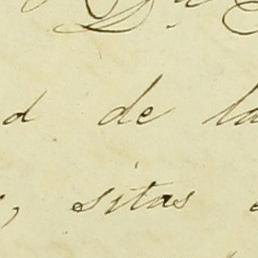 d de la
, sitas